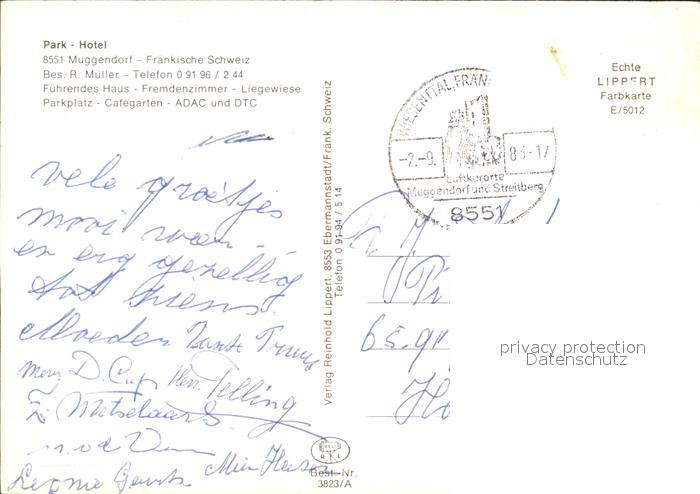 Park - Hotel
8551 Muggendorf – Fränkische Schweiz
Bes. R. Müller – Telefon 0 91 96 / 2 44
Führendes Haus - Fremdenzimmer - Liegewiese
Parkplatz - Cafégarten - ADAC und DTC
Echte
LIPPERT
Farbkarte
E/5012
WIESENTTAL, FRÄN
-2.-9. 83-17
Luftkurorte
Muggendorf und Streitberg
8551
vele groetjes
mooi weer.
en erg gezellig
tot ziens.
Moeder Tante Truus
D. Hen. Telling
Metselaars.
Verlag Reinhold Lippert, 8553 Ebermannstadt/Fränk. Schweiz
Telefon 0 91 94 / 5 14
65.
privacy protection
Datenschutz
Best.-Nr.
3823/A